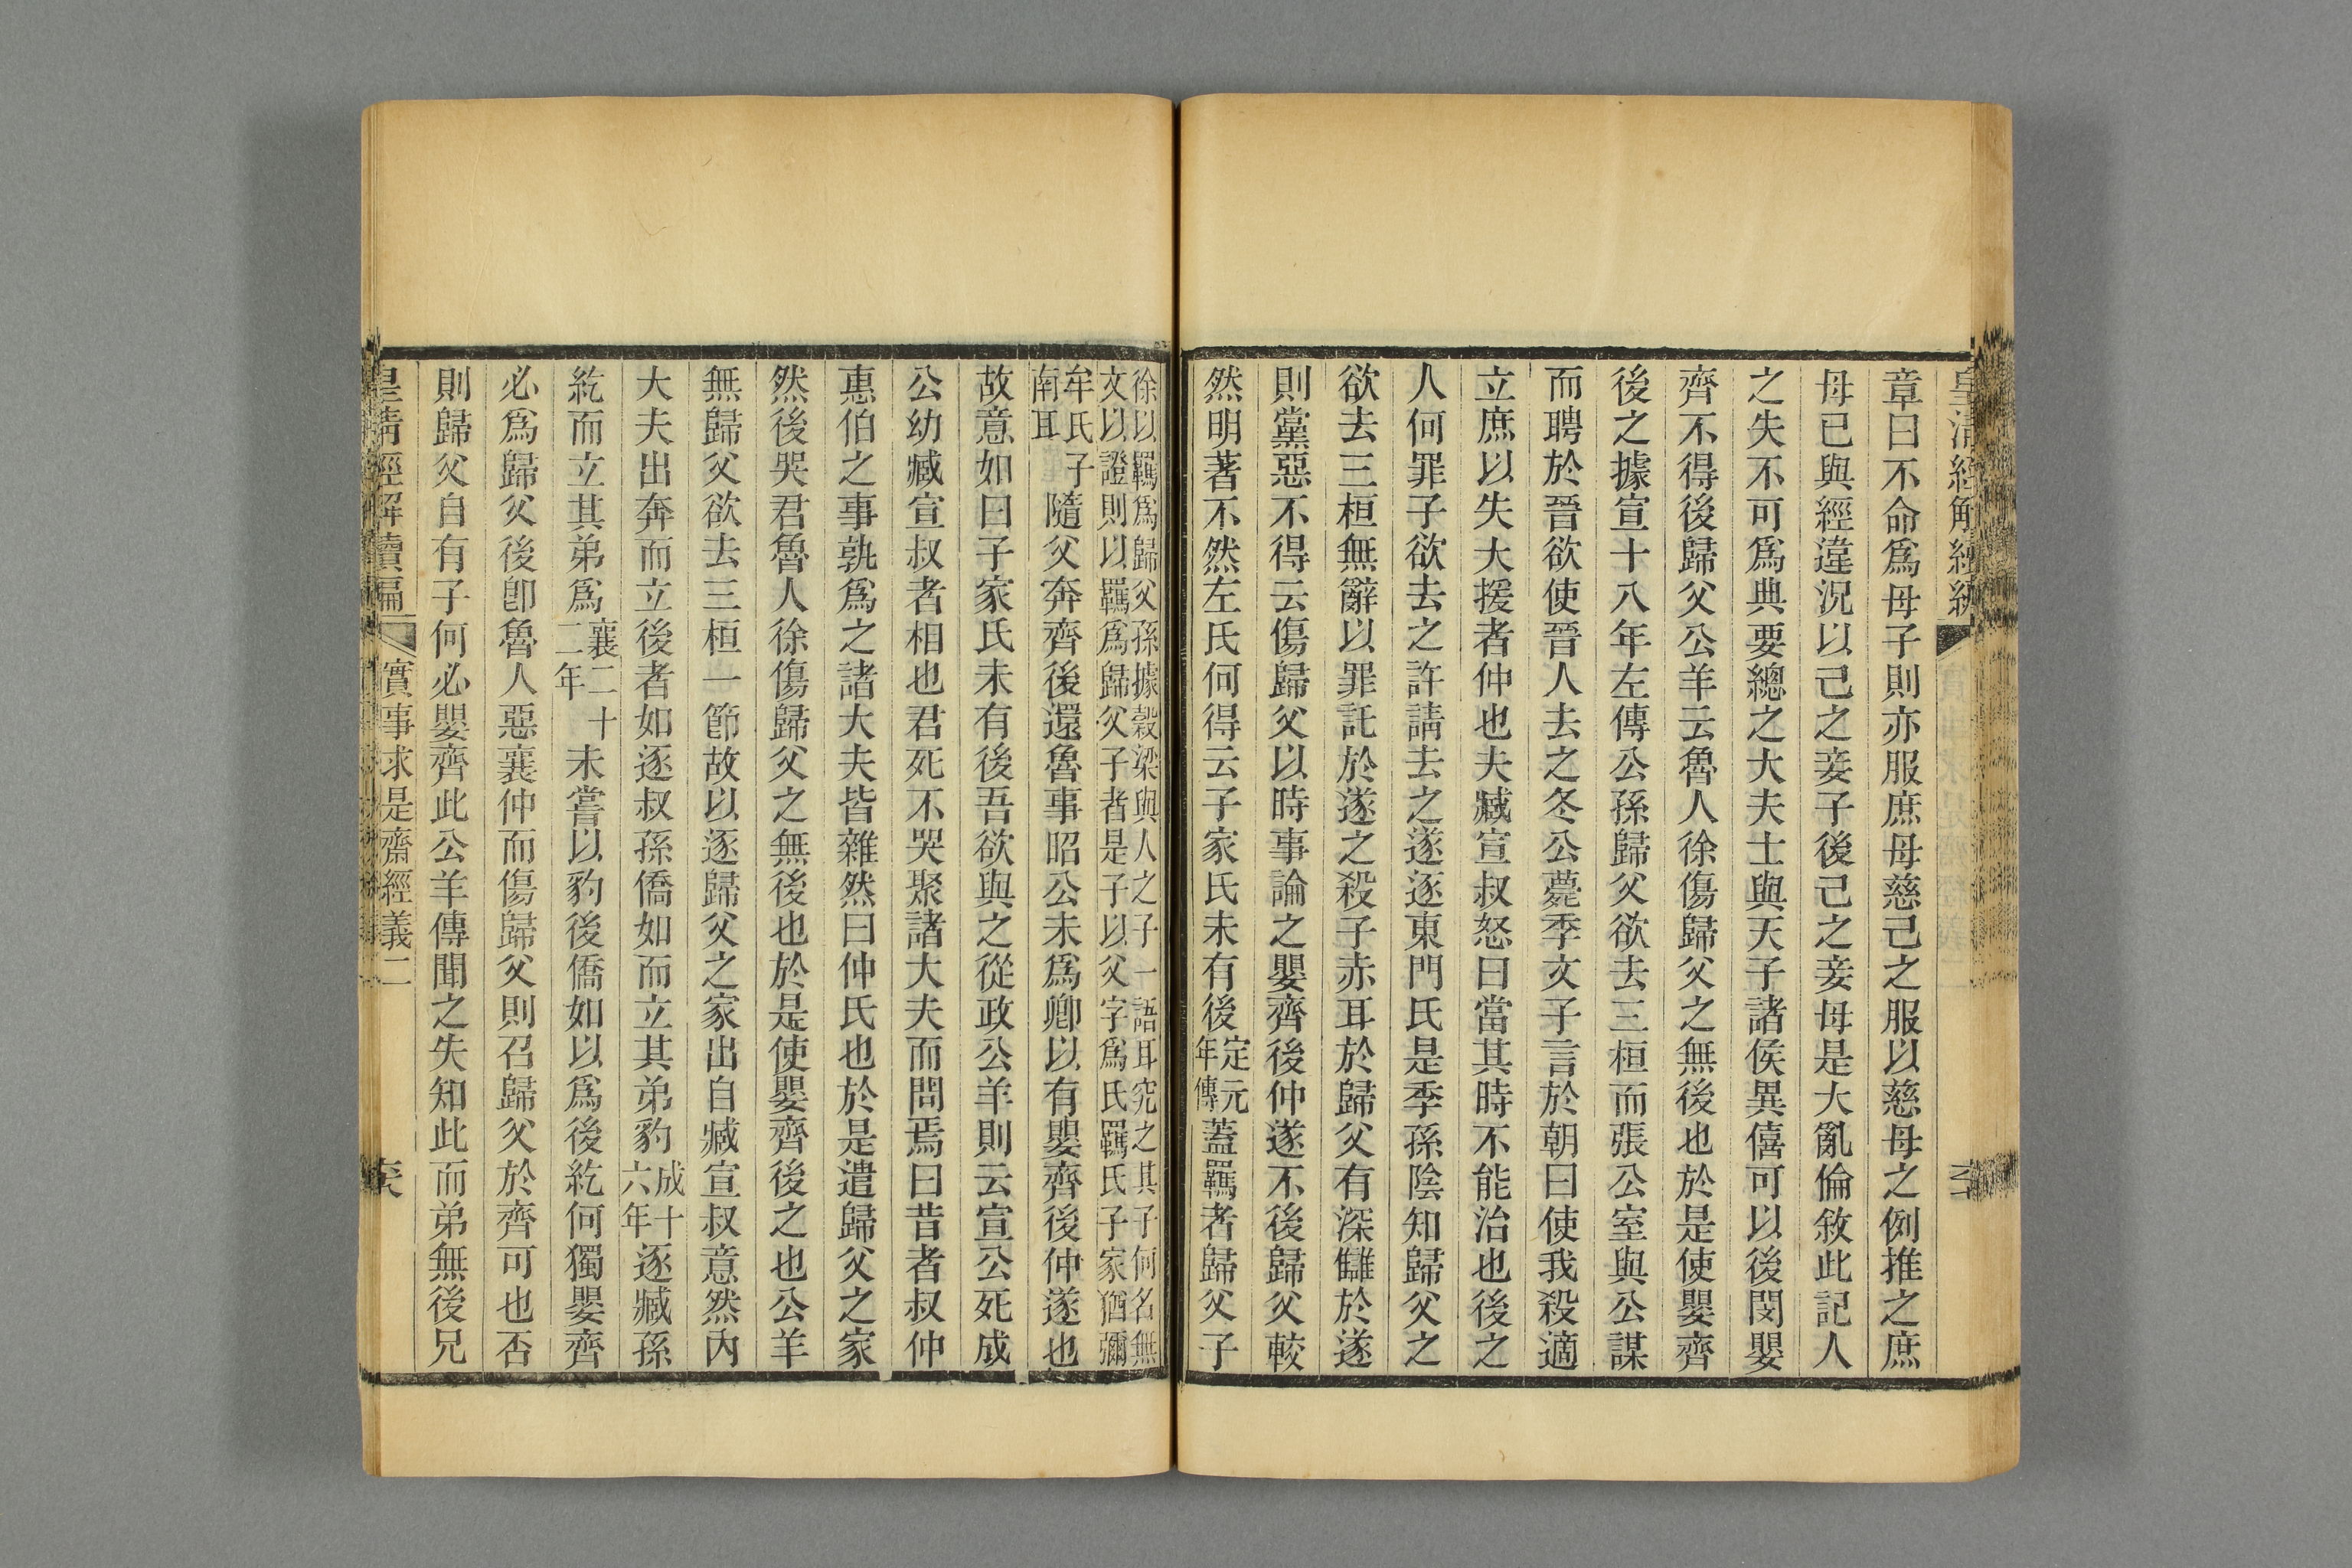 章曰不命爲母子則亦服庶母慈己之服以慈母之例推之庶
母已與經違況以己之妾子後己之妾母是大亂倫敘此記人
之失不可爲典要總之大夫士與天子諸侯異僖可以後閔嬰
齊不得後歸父公羊云魯人徐傷歸父之無後也於是使嬰齊
後之據宣十八年左傳公孫歸父欲去三桓而張公室與公謀
而聘於晉欲使晉人去之冬公薨季文子言於朝曰使我殺適
立庶以失大援者仲也夫臧宣叔怒曰當其時不能治也後之
人何罪子欲去之許請去之遂逐東門氏是季孫陰知歸父之
欲去三桓無辭以罪託於遂之殺子赤耳於歸父有深讎於遂
則黨惡不得云傷歸父以時事論之嬰齊後仲遂不後歸父較
然明著不然左氏何得云子家氏未有後定元年傳蓋羈者歸父子
徐以羈爲歸父孫據穀梁與人之子一語耳究之其子何名無
文以證則以羈爲歸父子者是子以父字爲氏羈氏子家猶彌
牟氏子
南耳
隨父奔齊後還魯事昭公未爲卿以有嬰齊後仲遂也
故意如曰子家氏未有後吾欲與之從政公羊則云宣公死成
公幼臧宣叔者相也君死不哭聚諸大夫而問焉曰昔者叔仲
惠伯之事孰爲之諸大夫皆雜然曰仲氏也於是遣歸父之家
然後哭君魯人徐傷歸父之無後也於是使嬰齊後之也公羊
無歸父欲去三桓一節故以逐歸父之家出自臧宣叔意然內
大夫出奔而立後者如逐叔孫僑如而立其弟豹成十六年逐臧孫
紇而立其弟爲襄二十二年未嘗以豹後僑如以爲後紇何獨嬰齊
必爲歸父後卽魯人惡襄仲而傷歸父則召歸父於齊可也否
則歸父自有子何必嬰齊此公羊傳聞之失知此而弟無後兄
皇清經解續編
實事求是齋經義二